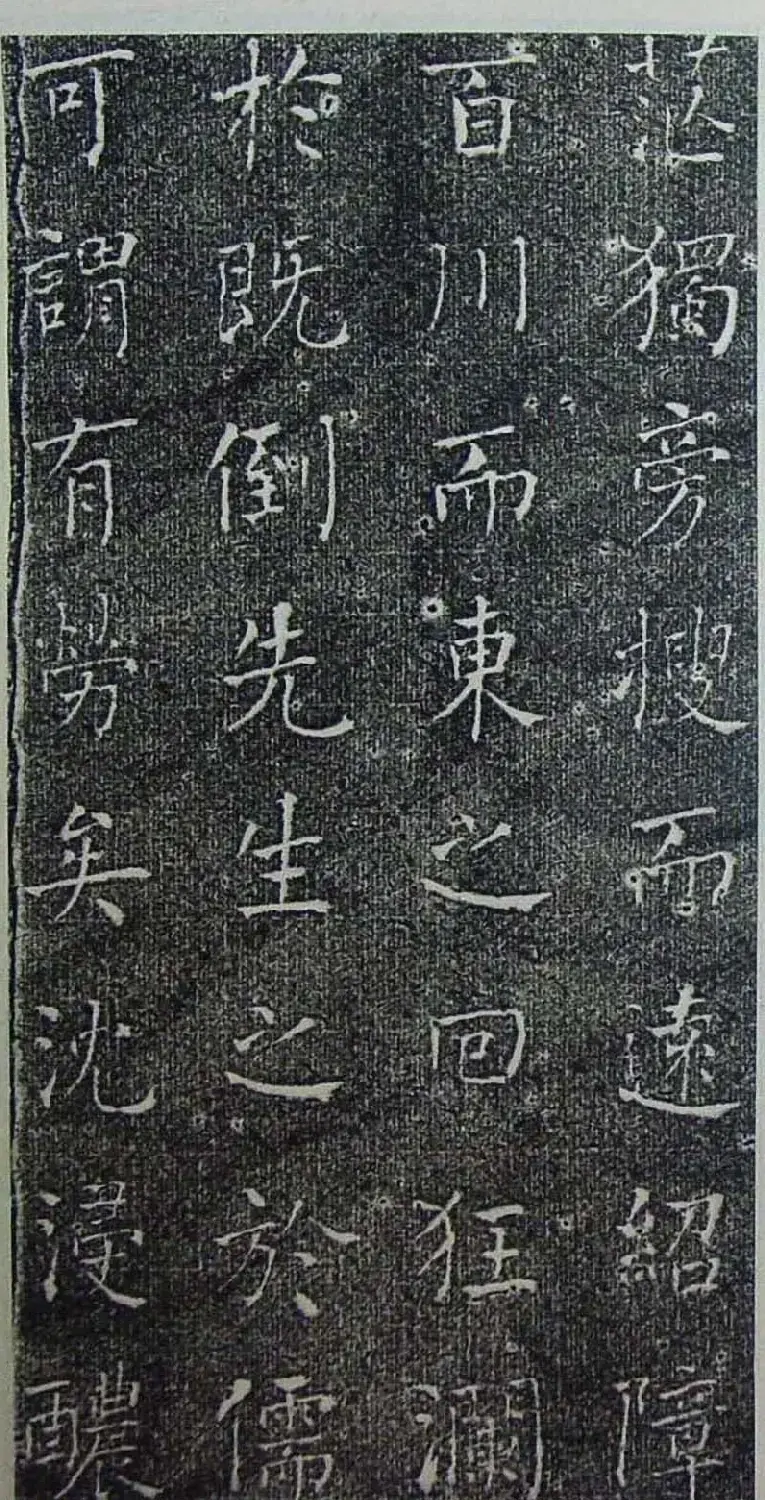 茫獨旁搜而遠紹障
百川而東之回狂瀾
於既倒先生之於儒
可謂有勞矣沈浸醲